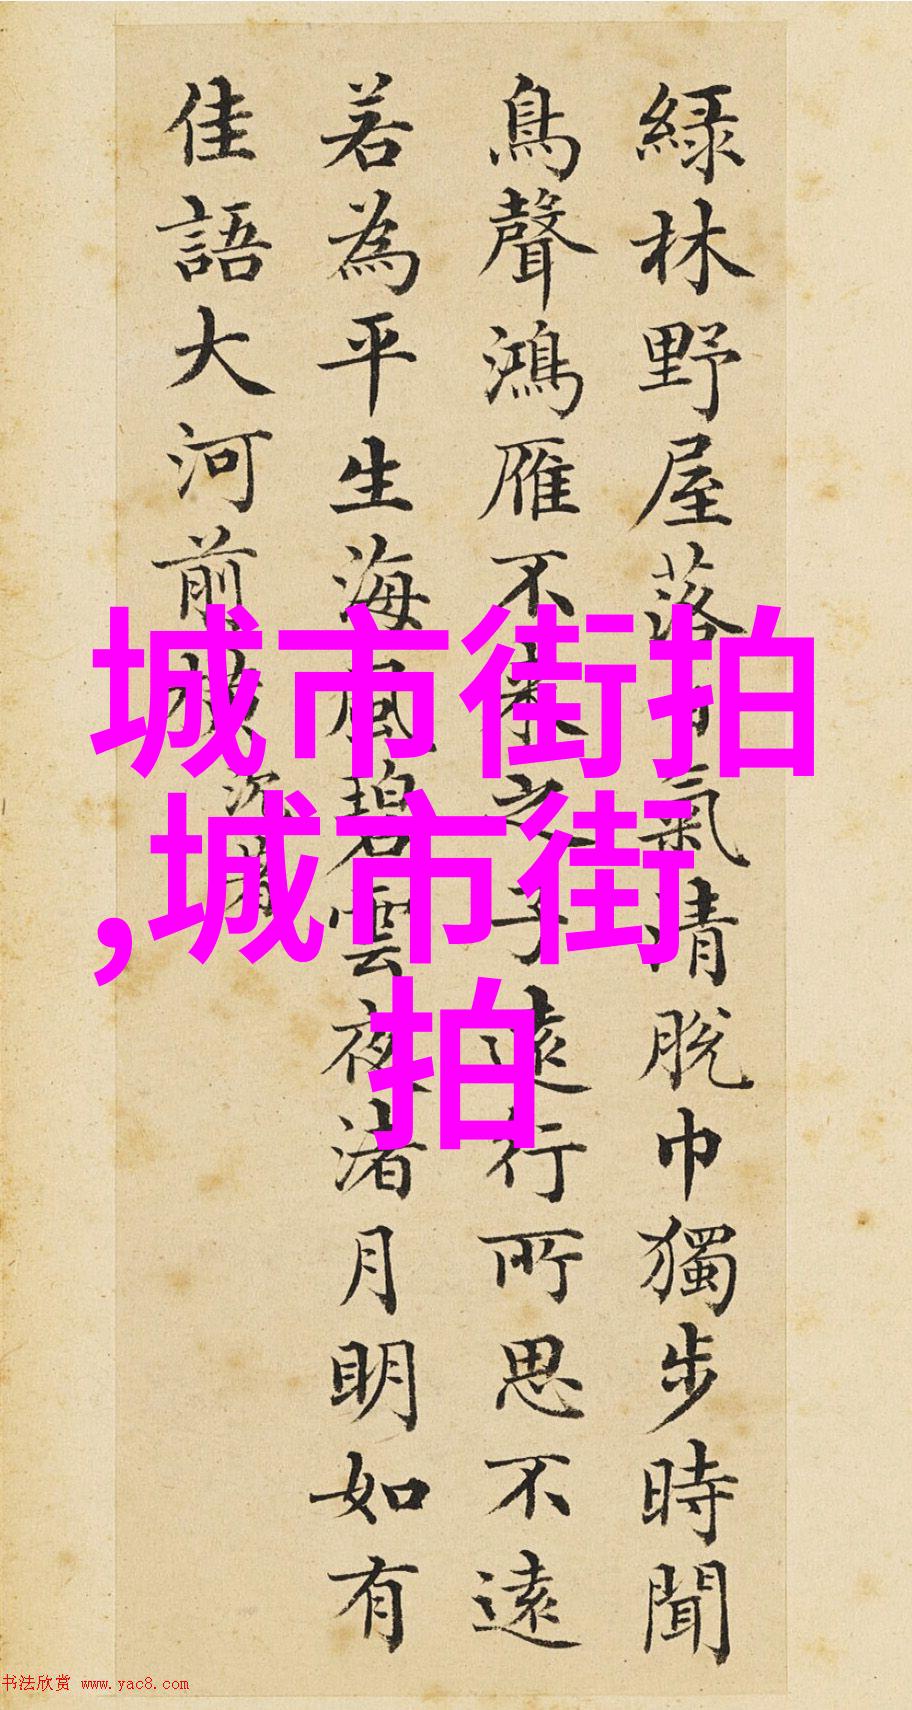 綠林野屋落日氣清脫巾獨步時聞
鳥聲鴻雁不來之子遠行所思不遠
若為平生海風碧雲夜渚月明如有
佳語大河前橫 沉著
城市街拍
,城市街
拍
书法欣赏 www.yac8.com